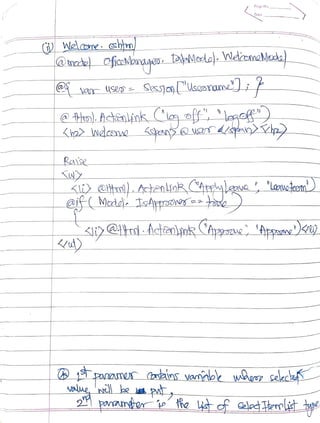 Welcome.cshtml
@model OfficeManager.DataModel.WelcomeModel
@{ var user = Session["Username"]; }
@Html.ActionLink("log off", "logoff")
<h2> Welcome <span> @user </span> </h2>
<ul>
<li> @Html.ActionLink("Apply Leave", "Leaveform")
@if (Model.IsApprover == true)
{
<li> @Html.ActionLink("Approve", "Approve") </li>
</ul>
1st parameter contains variable where selected
value will be put,
2nd parameter is the list of selectItemlist type